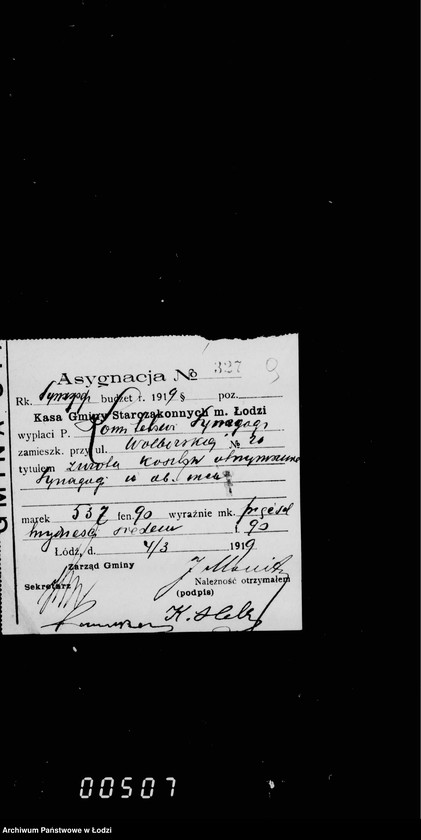 Asygnacja № 327 9
Rk. Synagogi budżet r. 1919 § poz.
Kasa Gminy Starozakonnych m. Łodzi
wypłaci P. Komitetowi Synagogi
zamieszk. przy ul. Wolborskiej № 20
tytułem zwrotu kosztów utrzymania
Synagogi w ub. mcu
marek 537 fen. 90 wyraźnie mk. pięćset
trzydzieści siedem f. 90
Łódź, d. 4/3 1919
Zarząd Gminy
Sekretarz Należność otrzymałem
(podpis)
00507
Archiwum Państwowe w Łodzi